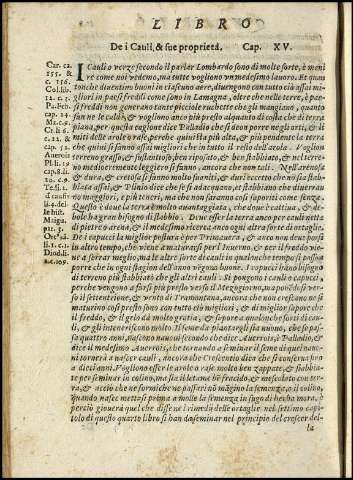 LIBRO
De i Cauli, & sue proprietà. Cap. XV.
Car. 12.
155. &
c. 156.
Col. lib.
12. c. 5.
Pa. Feb.
cap. 24.
Cr. li 6.
c. 22. &
cap. 52.
Auerois
Pl. li. 19
cap. 8. li
20. c. 9.
Te. li. 2
d caufis
li 4. del-
le hist.
pir. 3.
li. 1. c. 1.
Diod. li.
2. c. 109.
I Cauli o verze secondo il parlar Lombardo sono di molte sorte, è meni
re come noi vedemo, ma tutte vogliono vn medesimo lauoro. Et quan
tonche diuentino buoni in ciascuno aere, diuengono con tutto ciò assai mi
gliori in paesi freddi come sono in Lamagna, oltre che nelle terre, è pen-
si freddi non generano tante picciole ruchette che gli mangiano, quanto
fan ne le caldi, & vogliono anco più presto alquanto di costa che di terra
piana, per questo vogliono dice Palladio che si deon porre negli arti, & li
miti delle arole o rase, perche quiui sta più alta, & più pendente la terra
che quini si fanno assai migliori che in tutto il resto dell'arola. Voglion
terreno grasso, & sustantioso, ben riposato, & ben stabbiato, & nel terre-
no mediocremente leggiero si fanno, ancora che non tali. Nell'arenosa
& dura, & cretosa si fanno molto sanissimi, & duri certo se non sia stab-
biata assai, & Plinio dice che se si adacquano, et stabbiano che diuerran
no maggiori, e più teneri, ma che non saranno così saporiti come senza.
Questo si deue la terra molto vantaggiata, che doue è cattiua, & de-
bole ha gran bisogno di stabbio. Deue esser la terra anco per cauli netta
di pietre o arena, & il medemo ricerca ancora ogni altra sorte di ortaglie.
De i capucci la miglior postura è per Primauera, & arco non deue porsi
in altro tempo, che viene à maturarsi per l'Inuerno, & per il freddo vie-
ne à serrar meglio, ma le altre sorti di cauli in qualunche tempo si posson
porre che in ogni stagion dell'anno vegnono buoni. I capucci hanno bisogno
di terreno più stabbiato che gli altri cauli. Si pongono i cauli o capucci,
perche vengono a farsi più presto verso il Mezogiorno, ma ponédosi ver-
so il settentrione, & vento di Tramontana, ancora che non crescano ne si
maturino così presto sono con tutto ciò migliori, & di miglior sapore che
il freddo, & il gelo dà molta gratia, & sapore a qualonche sorti di cau-
li, & gli intenerisce molto. Il seme da piantargli sia nuouo, che se pas-
sa quattro anni, nascono nauoni secondo che dice Auerrois, & Palladio, &
dice il medesimo Auerrois, che tornando a seminar il seme di quei nauo-
ni tornerà a nascer cauli, ancora che Crescentio dice che si conserua fino
a dieci anni. Vogliono esser le arole o rase molto ben zappate, & stabbia-
te per seminar in colino, ma sia il letame bē fracido, & mescolato con ter-
ra, & acciò che ne formiche ne passeri nō mágino la semenza, o il colino,
quando nasce mettasi prima a molle la semenza in sugo di herba mora, &
perciò giouerà quel che disse ne i rimedij delle ortaglie nel settimo capi-
tolo di questo quarto libro si han da seminar nel principio del crescer del-
la